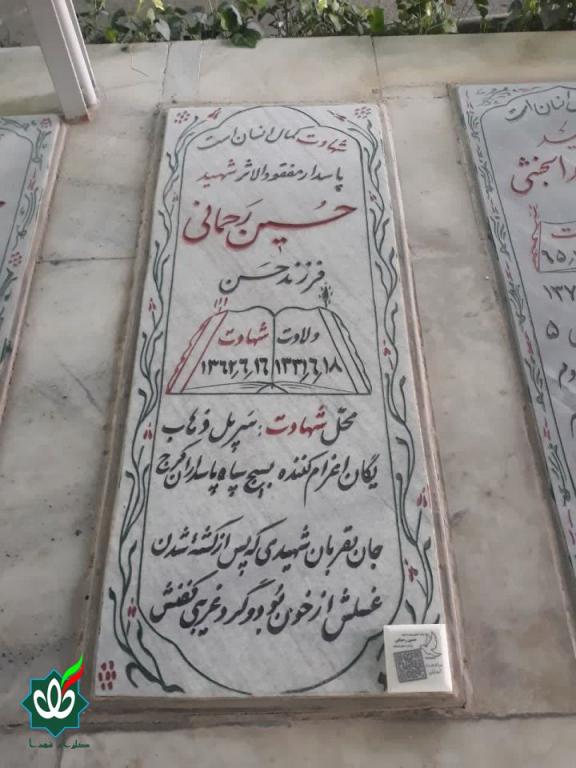 شهادت کمال انسان است
پاسدار مفقودالاثر شهید
حسین رحمانی
فرزند حسن
ولادت شهادت
۱۳۳۱٫۶٫۱۸ ۱۳۶۲٫۶٫۱۶
محل شهادت: سرپل ذهاب
یگان اعزام کننده بسیج سپاه پاسداران کرج
جان بقربان شهیدی که پس از کشته شدن
غسلش از خون بُوَد و گرد غریبی کفنش
انسان است
۱۳۷
۵